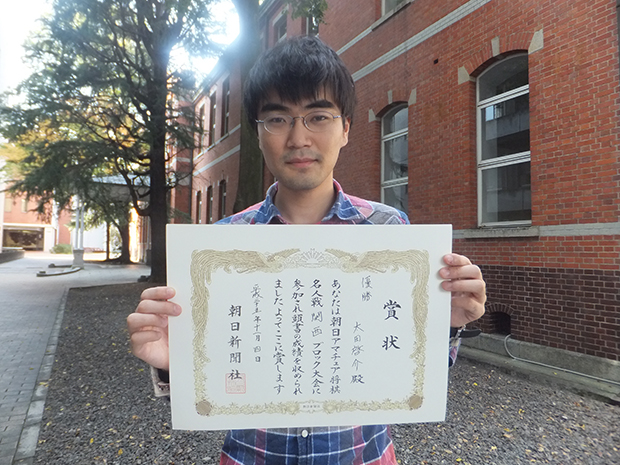 賞状
優勝
太田啓介殿
あなたは朝日アマチュア将棋
名人戦関西ブロック大会に
参加され頭書の成績を収められ
ましたよってここに賞します
平成廿五年十一月四日
朝日新聞社